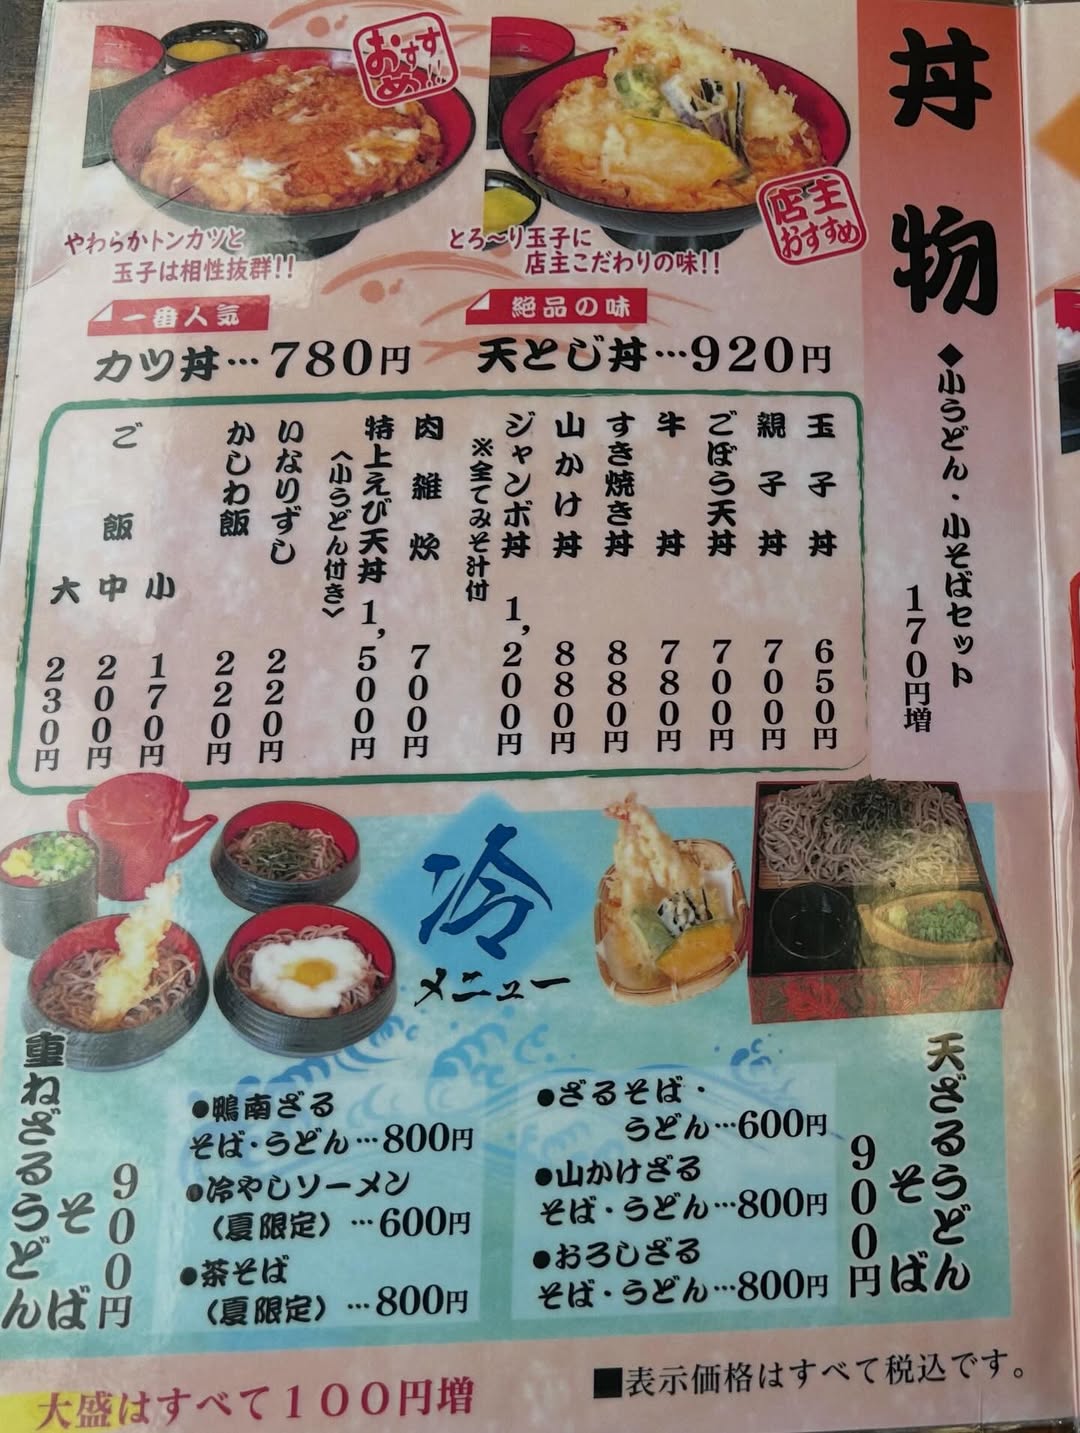 丼物
◆小うどん・小そばセット
170円増
おすすめ!!
やわらかトンカツと
玉子は相性抜群!!
一番人気
カツ丼…780円
店主
おすすめ
とろ〜り玉子に
店主こだわりの味!!
絶品の味
天とじ丼…920円
玉子丼 650円
親子丼 700円
ごぼう天丼 700円
牛丼 780円
すき焼き丼 880円
山かけ丼 880円
ジャンボ丼 1,200円
※全てみそ汁付
肉雑炊 700円
特上えび天丼 1,500円
〈小うどん付き〉
いなりずし 220円
かしわ飯 220円
ご飯
小 170円
中 200円
大 230円
冷
メニュー
天ざるうどん
そば
900円
●ざるそば・
うどん…600円
●山かけざる
そば・うどん…800円
●おろしざる
そば・うどん…800円
●鴨南ざる
そば・うどん…800円
●冷やしソーメン
（夏限定）…600円
●茶そば
（夏限定）…800円
重ねざるうどん
そば
900円
大盛はすべて100円増
■表示価格はすべて税込です。